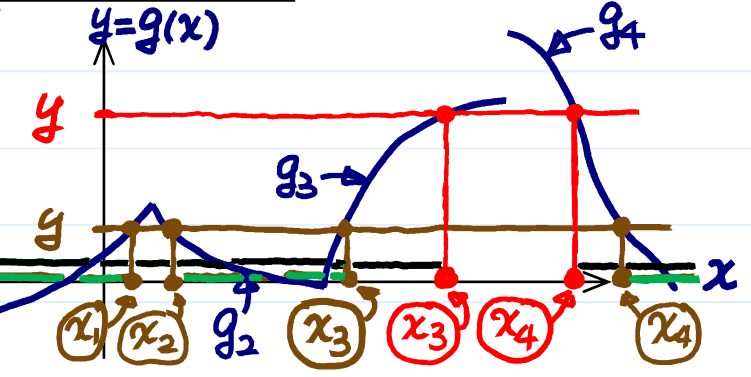 y=g(x)
g4
y
g3
y
x
x1
x2
g2
x3
x3
x4
x4